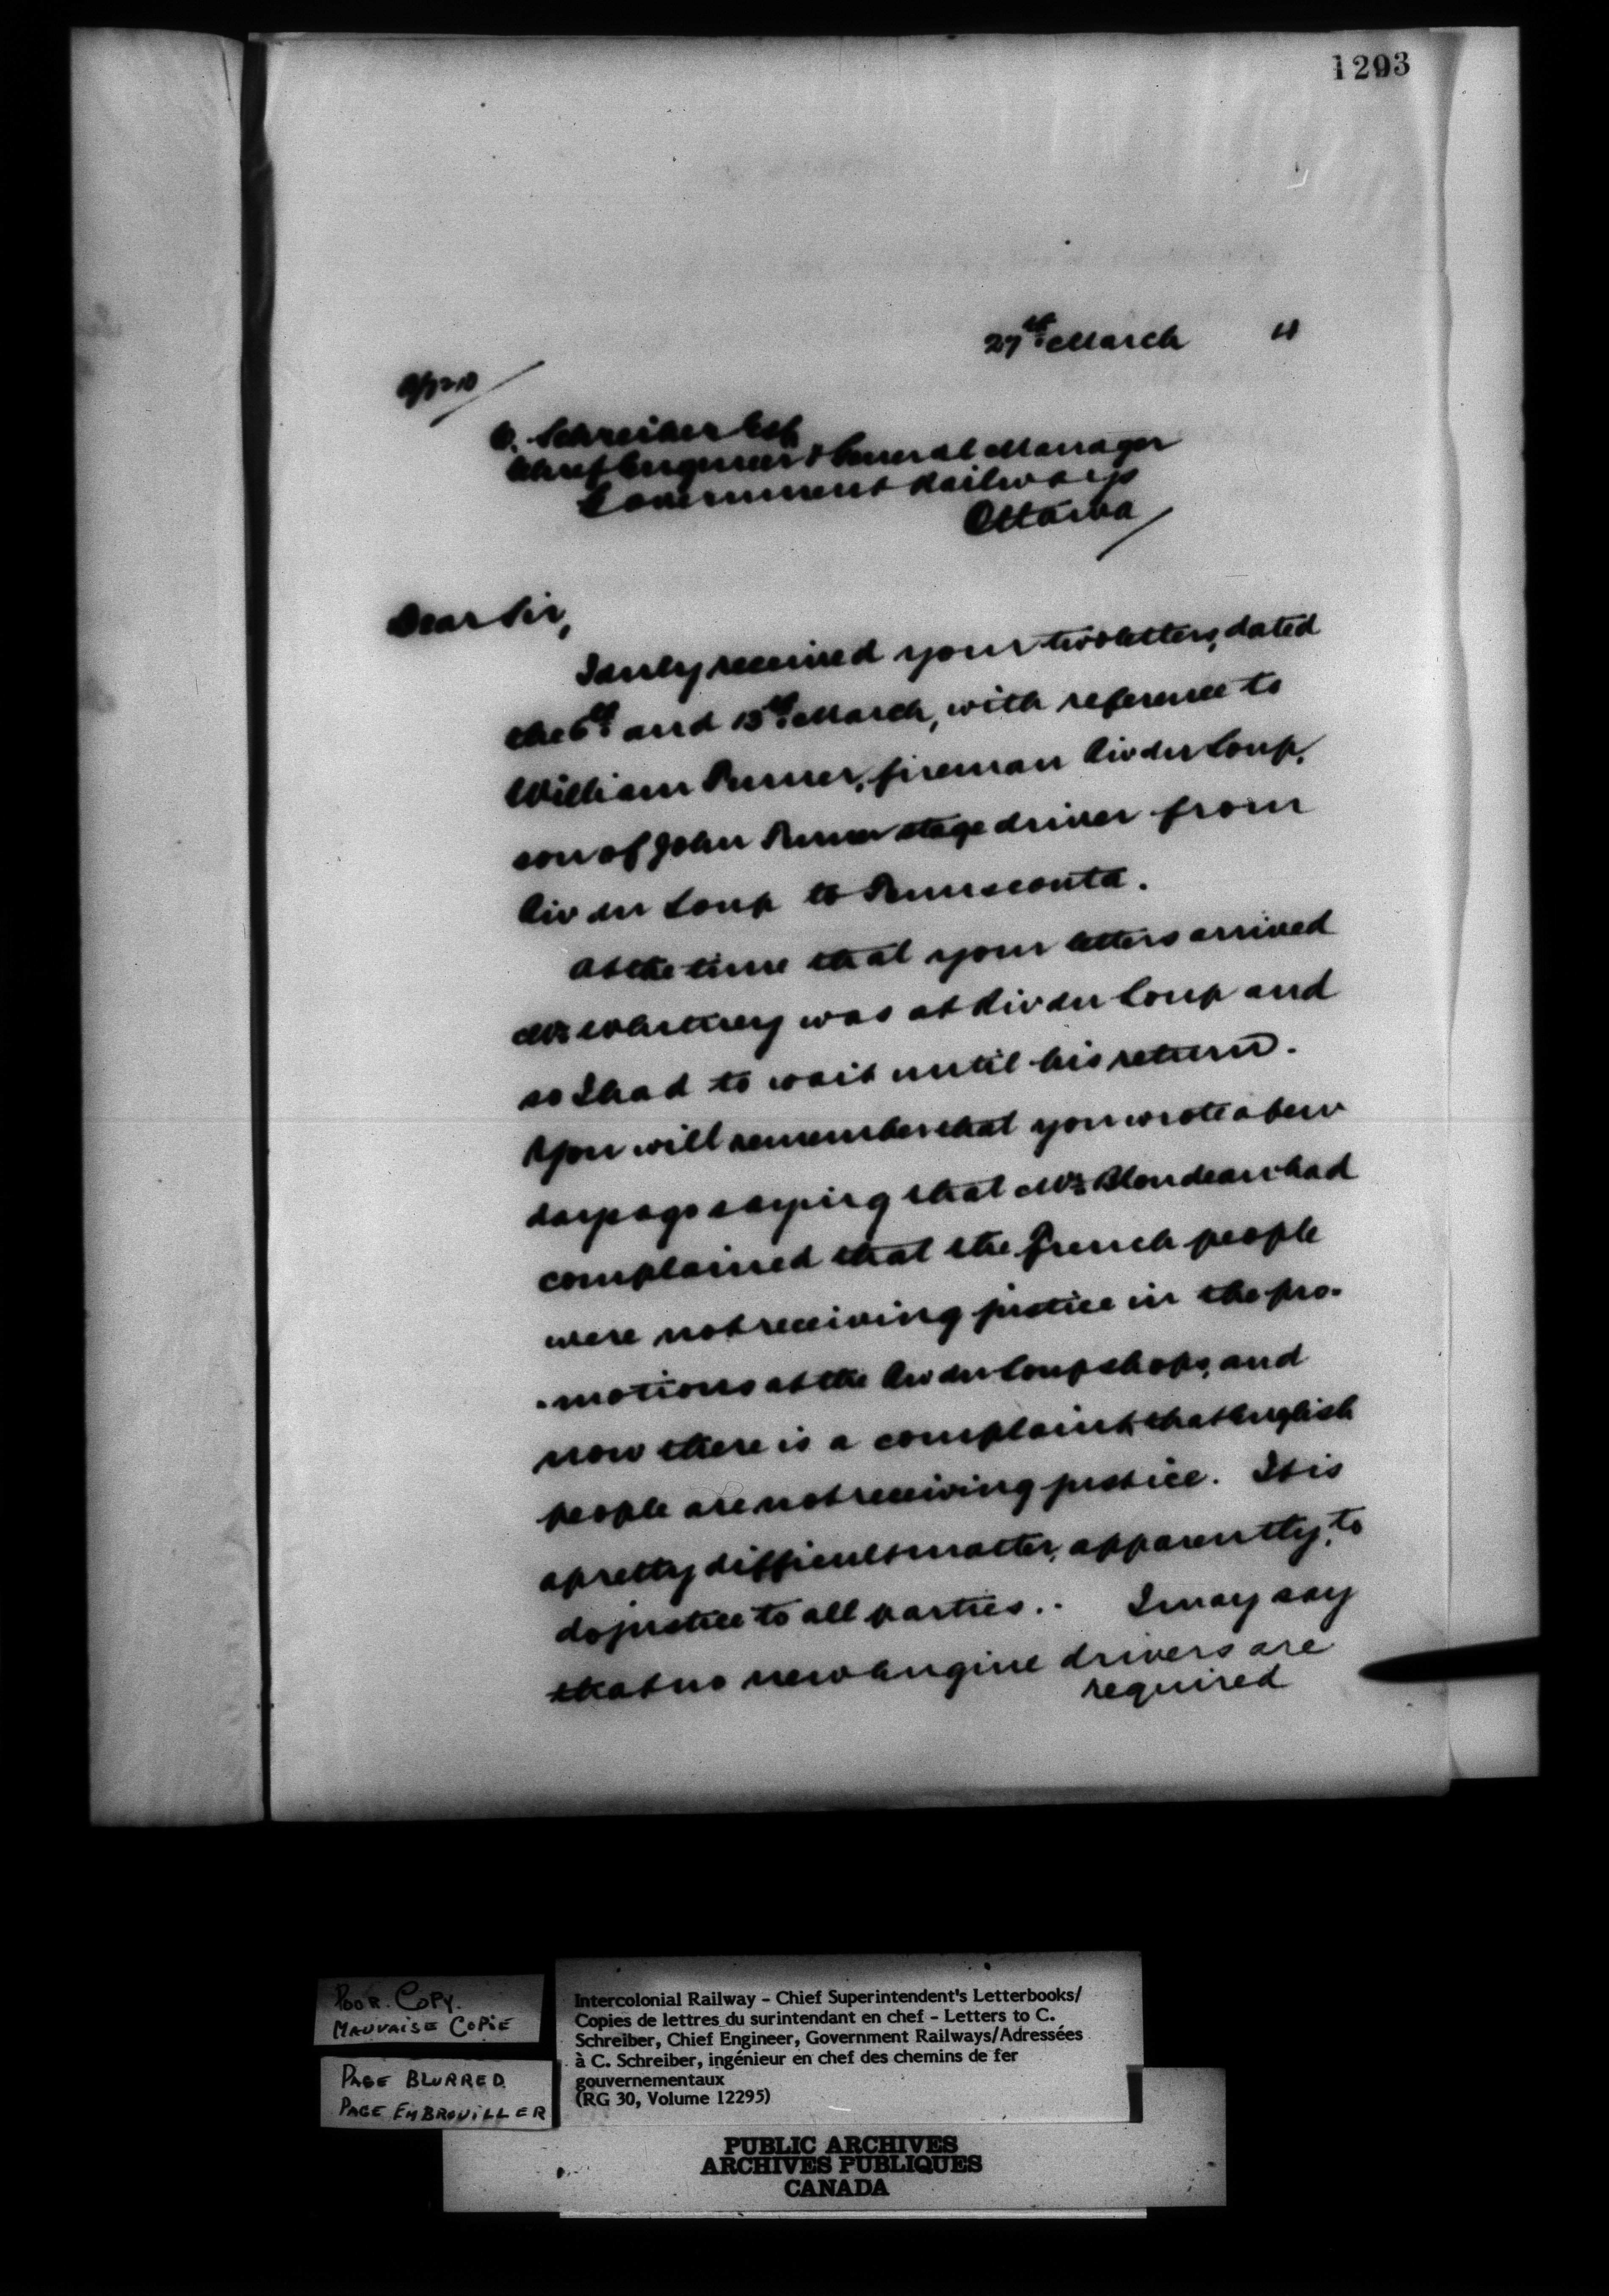 1293
27th March
C. Schreiber Esq
Chief Engineer & General Manager
Government Railways
Ottawa
Dear Sir,
I duly received your two letters, dated
the 6th and 13th March, with reference to
William Turner, fireman Riv du Loup,
son of John Turner stage driver from
Riv du Loup to Temisconta.
At the time that your letters arrived
Mr Whitney was at Riv du Loup and
so I had to wait until his return.
You will remember that you wrote a few
days ago saying that Mr Blondeau had
complained that the French people
were not receiving justice in the pro-
-motions at the Riv du Loup shops, and
now there is a complaint that English
people are not receiving justice. It is
a pretty difficult matter, apparently, to
do justice to all parties.. I may say
that no new engine drivers are
required
POOR. COPY.
MAUVAISE COPIE
PAGE BLURRED
PAGE EMBROUILLER
Intercolonial Railway - Chief Superintendent's Letterbooks/
Copies de lettres du surintendant en chef - Letters to C.
Schreiber, Chief Engineer, Government Railways/Adressées
à C. Schreiber, ingénieur en chef des chemins de fer
gouvernementaux
(RG 30, Volume 12295)
PUBLIC ARCHIVES
ARCHIVES PUBLIQUES
CANADA